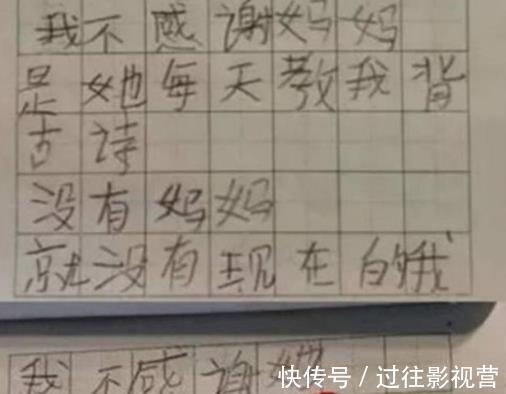 我不感谢妈妈
是她每天教我背
古诗
没有妈妈
就没有现在的我
我不感谢她
快传号／过往影视营